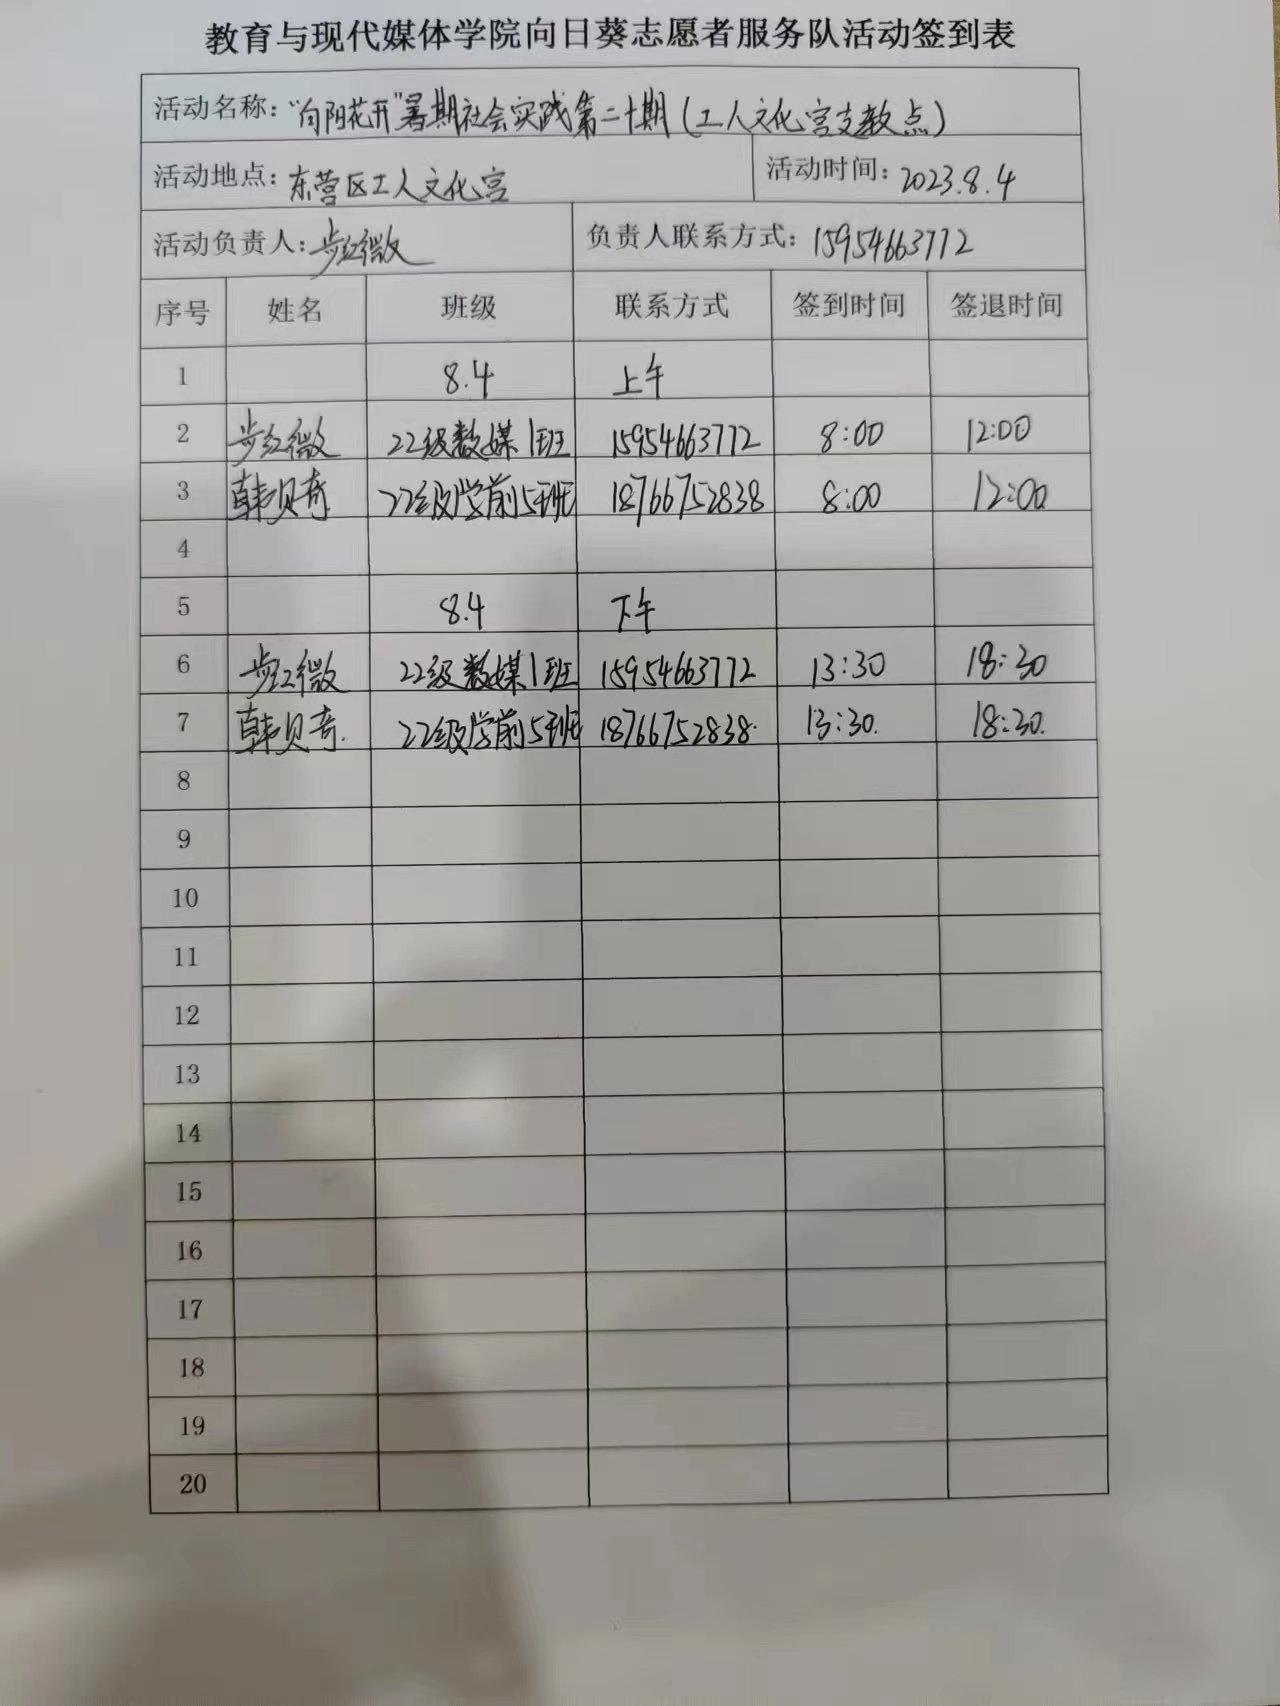 教育与现代媒体学院向日葵志愿者服务队活动签到表
活动名称：“向阳花开”暑期社会实践第二十期（工人文化宫支教点）
活动地点：东营区工人文化宫 活动时间：2023.8.4
活动负责人：步红微 负责人联系方式：15954663772
序号 姓名 班级 联系方式 签到时间 签退时间
1 8.4 上午
2 步红微 22级数媒1班 15954663772 8:00 12:00
3 韩贝奇 22级学前5班 18766752838 8:00 12:00
4
5 8.4 下午
6 步红微 22级数媒1班 15954663772 13:30 18:30
7 韩贝奇. 22级学前5班 18766752838. 13:30. 18:30.
8
9
10
11
12
13
14
15
16
17
18
19
20